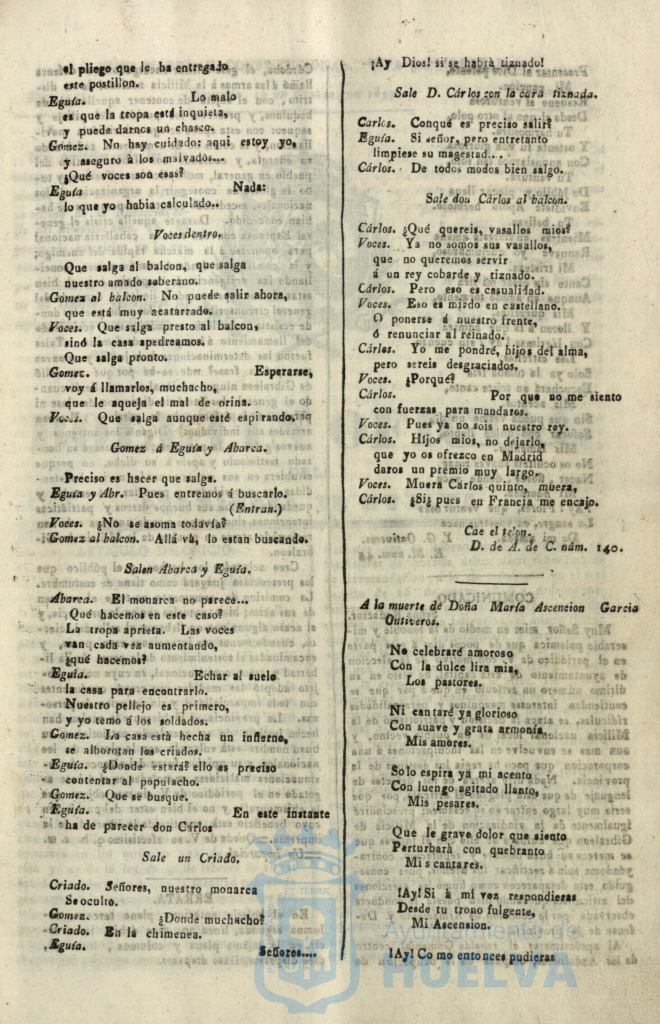 el pliego que le ha entregado
este postillon.
Eguía. Lo malo
es que la tropa está inquieta,
y puede darnos un chasco.
Gomez. No hay cuidado: aqui estoy yo,
y aseguro à los malvados...
¿Qué voces son esas?
Eguía Nada:
lo que yo habia calculado..
Voces dentro.
Que salga al balcon, que salga
nuestro amado soberano.
Gomez al balcon. No puede salir ahora,
que está muy acatarrado.
Voces. Que salga presto al balcon,
sinó la casa apedreamos.
Que salga pronto.
Gomez. Esperarse,
voy á llamarlos, muchacho,
que le aqueja el mal de orina.
Voces. Que salga aunque esté espirando.
Gomez á Eguía y Abarca.
Preciso es hacer que salga.
Eguía y Abr. Pues entremos á buscarlo.
(Entran.)
Voces. ¿No se asoma todavía?
Gomez al balcon. Allá và, lo estan buscando.
Salen Abarca y Eguía.
Abarca. El monarca no parece...
¿Qué hacemos en este caso?
La tropa aprieta. Las voces
van cada vez aumentando,
¿qué hacemos?
Eguía. Echar al suelo
la casa para encontrarlo.
Nuestro pellejo es primero,
y yo temo á los soldados.
Gomez. La casa està hecha un infierno,
se alborotan los criados.
Eguía. ¿Donde estará? ello es preciso
contentar al populacho.
Gomez. Que se busque.
Eguía. En este instante
ha de parecer don Cárlos
Sale un Criado.
Criado. Señores, nuestro monarca
Se oculto.
Gomez. ¿Donde muchacho?
Criado. En la chimenea.
Eguía. Señores....
¡Ay Dios! si se habrà tiznado!
Sale D. Cárlos con la cara tiznada.
Carlos. Conqué es preciso salir?
Eguía. Si señor, pero entretanto
limpiese su magestad...
Cárlos. De todos modos bien salgo.
Sale don Cárlos al balcon.
Cárlos. ¿Qué quereis, vasallos mios?
Voces. Ya no somos sus vasallos,
que no queremos servir
á un rey cobarde y tiznado.
Cárlos. Pero eso es casualidad.
Voces. Eso es miedo en castellano.
O ponerse á nuestro frente,
ó renunciar al reinado.
Cárlos. Yo me pondré, hijos del alma,
pero sereis desgraciados.
Voces. ¿Porqué?
Cárlos. Por que no me siento
con fuerzas para mandaros.
Voces. Pues ya no sois nuestro rey.
Cárlos. Hijos mios, no dejarlo,
que yo os ofrezco en Madrid
daros un premio muy largo.
Voces. Muera Cárlos quinto, muera,
Cárlos. ¿Si¿ pues en Francia me encajo.
Cae el telon.
D. de A. de C. núm. 140.
A la muerte de Doña María Ascencion Garcia
Ontiveros.
No celebraré amoroso
Con la dulce lira mia,
Los pastores.
Ni cantaré ya glorioso
Con suave y grata armonía,
Mis amores.
Solo espira ya mi acento
Con luengo agitado llanto,
Mis pesares.
Que le grave dolor que siento
Perturbarà con quebranto
Mis cantares.
¡Ay! Si à mi voz respondieras
Desde tu trono fulgente,
Mi Ascension.
¡Ay! Como entonces pudieras
Ayuntamiento de
HUELVA